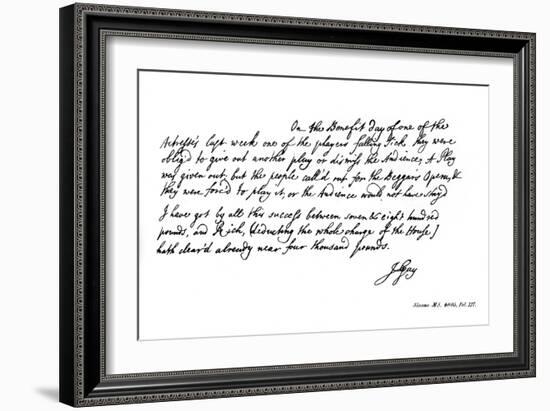 On the Benefit day of one of the
Actresse's last week one of the players falling sick they were
oblig'd to give out another play or dismiss the Audience, A Play
was given out, but the people call'd out for the Beggars Opera, &
they were forc'd to play it, or the Audience would not have stayd
I have got by all this success between seven & eight hundred
pounds, and Rich, (deducting the whole charge of the House)
hath clear'd already near four thousand pounds.
J Gay
Sloane MS. 4095, Fol.